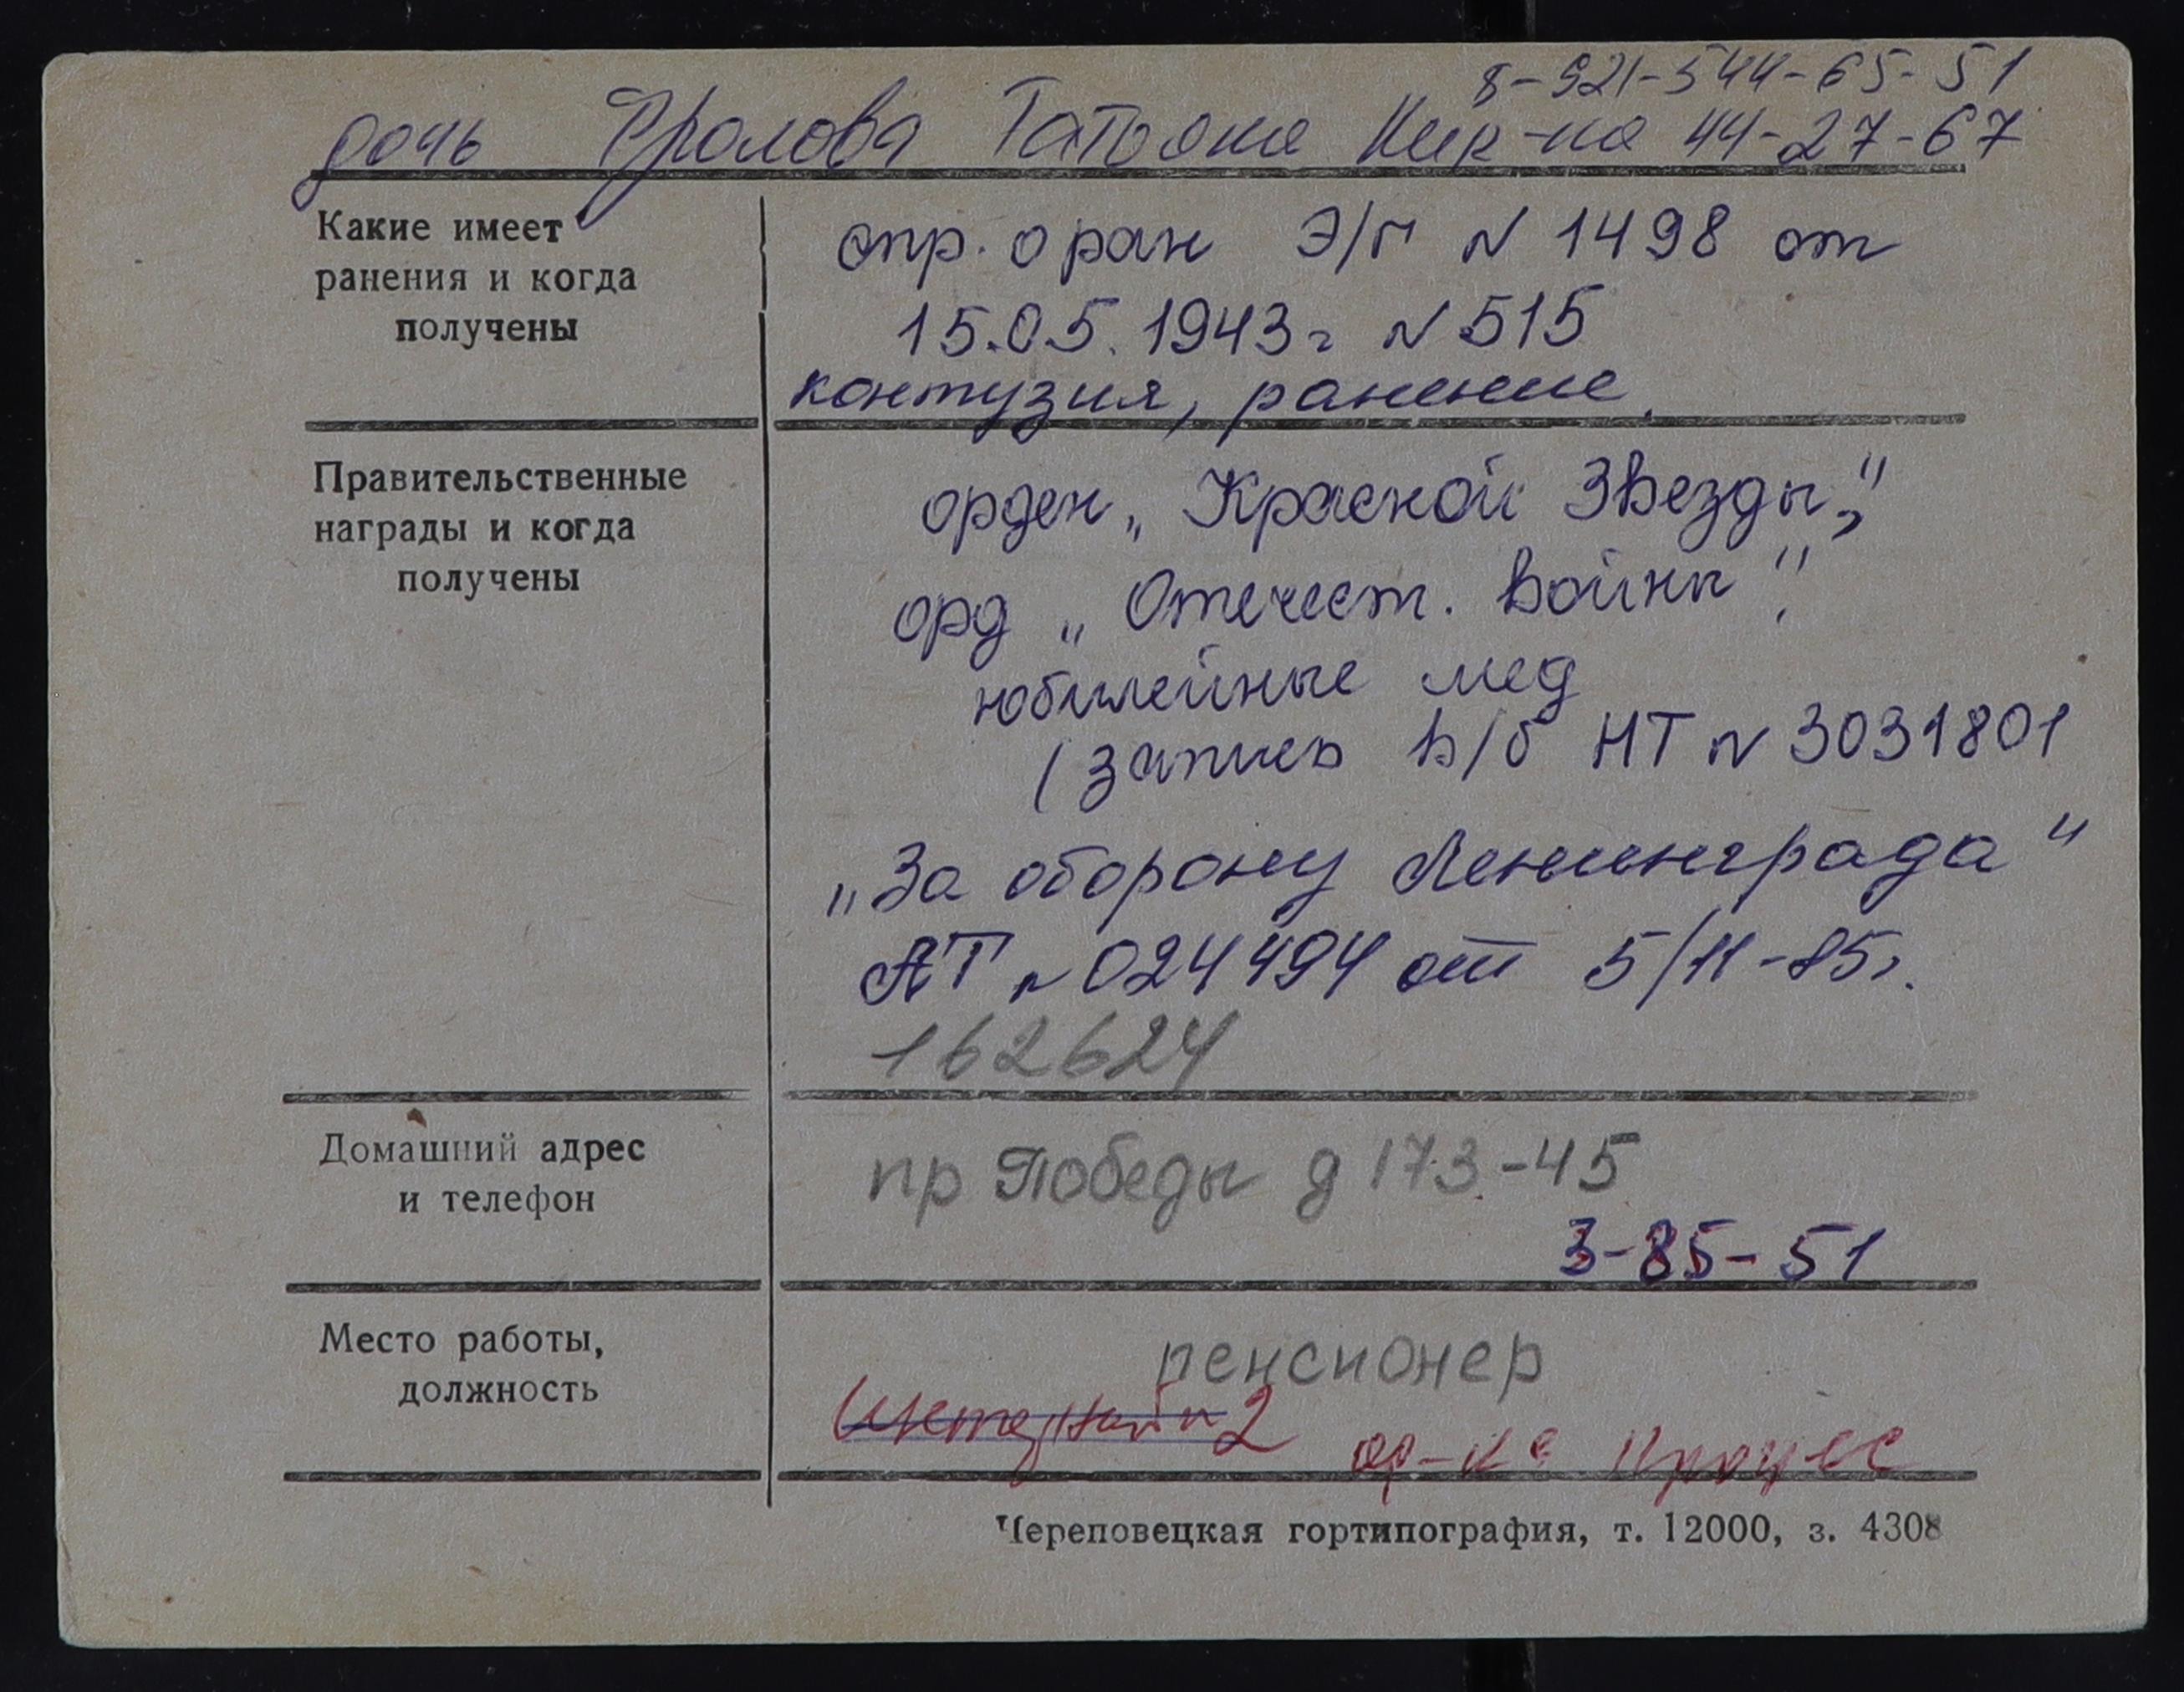 8-921-544-65-51
дочь Фролова Татьяна Кир-на 44-27-67
Какие имеет
ранения и когда
получены
спр. о ран Э/г N 1498 от
15.05.1943г N 515
контузия, ранение.
Правительственные
награды и когда
получены
орден „Красной Звезды,"
орд „Отечест. Войны",
юбилейные мед
(запись в/б НТ N 3031801
„За оборону Ленинграда"
АТ N 024494 от 5/11-85г.
162624
Домашний адрес
и телефон
пр Победы д 173-45
3-85-51
Место работы,
должность
пенсионер
2
Череповецкая гортипография, т. 12000, з. 4308